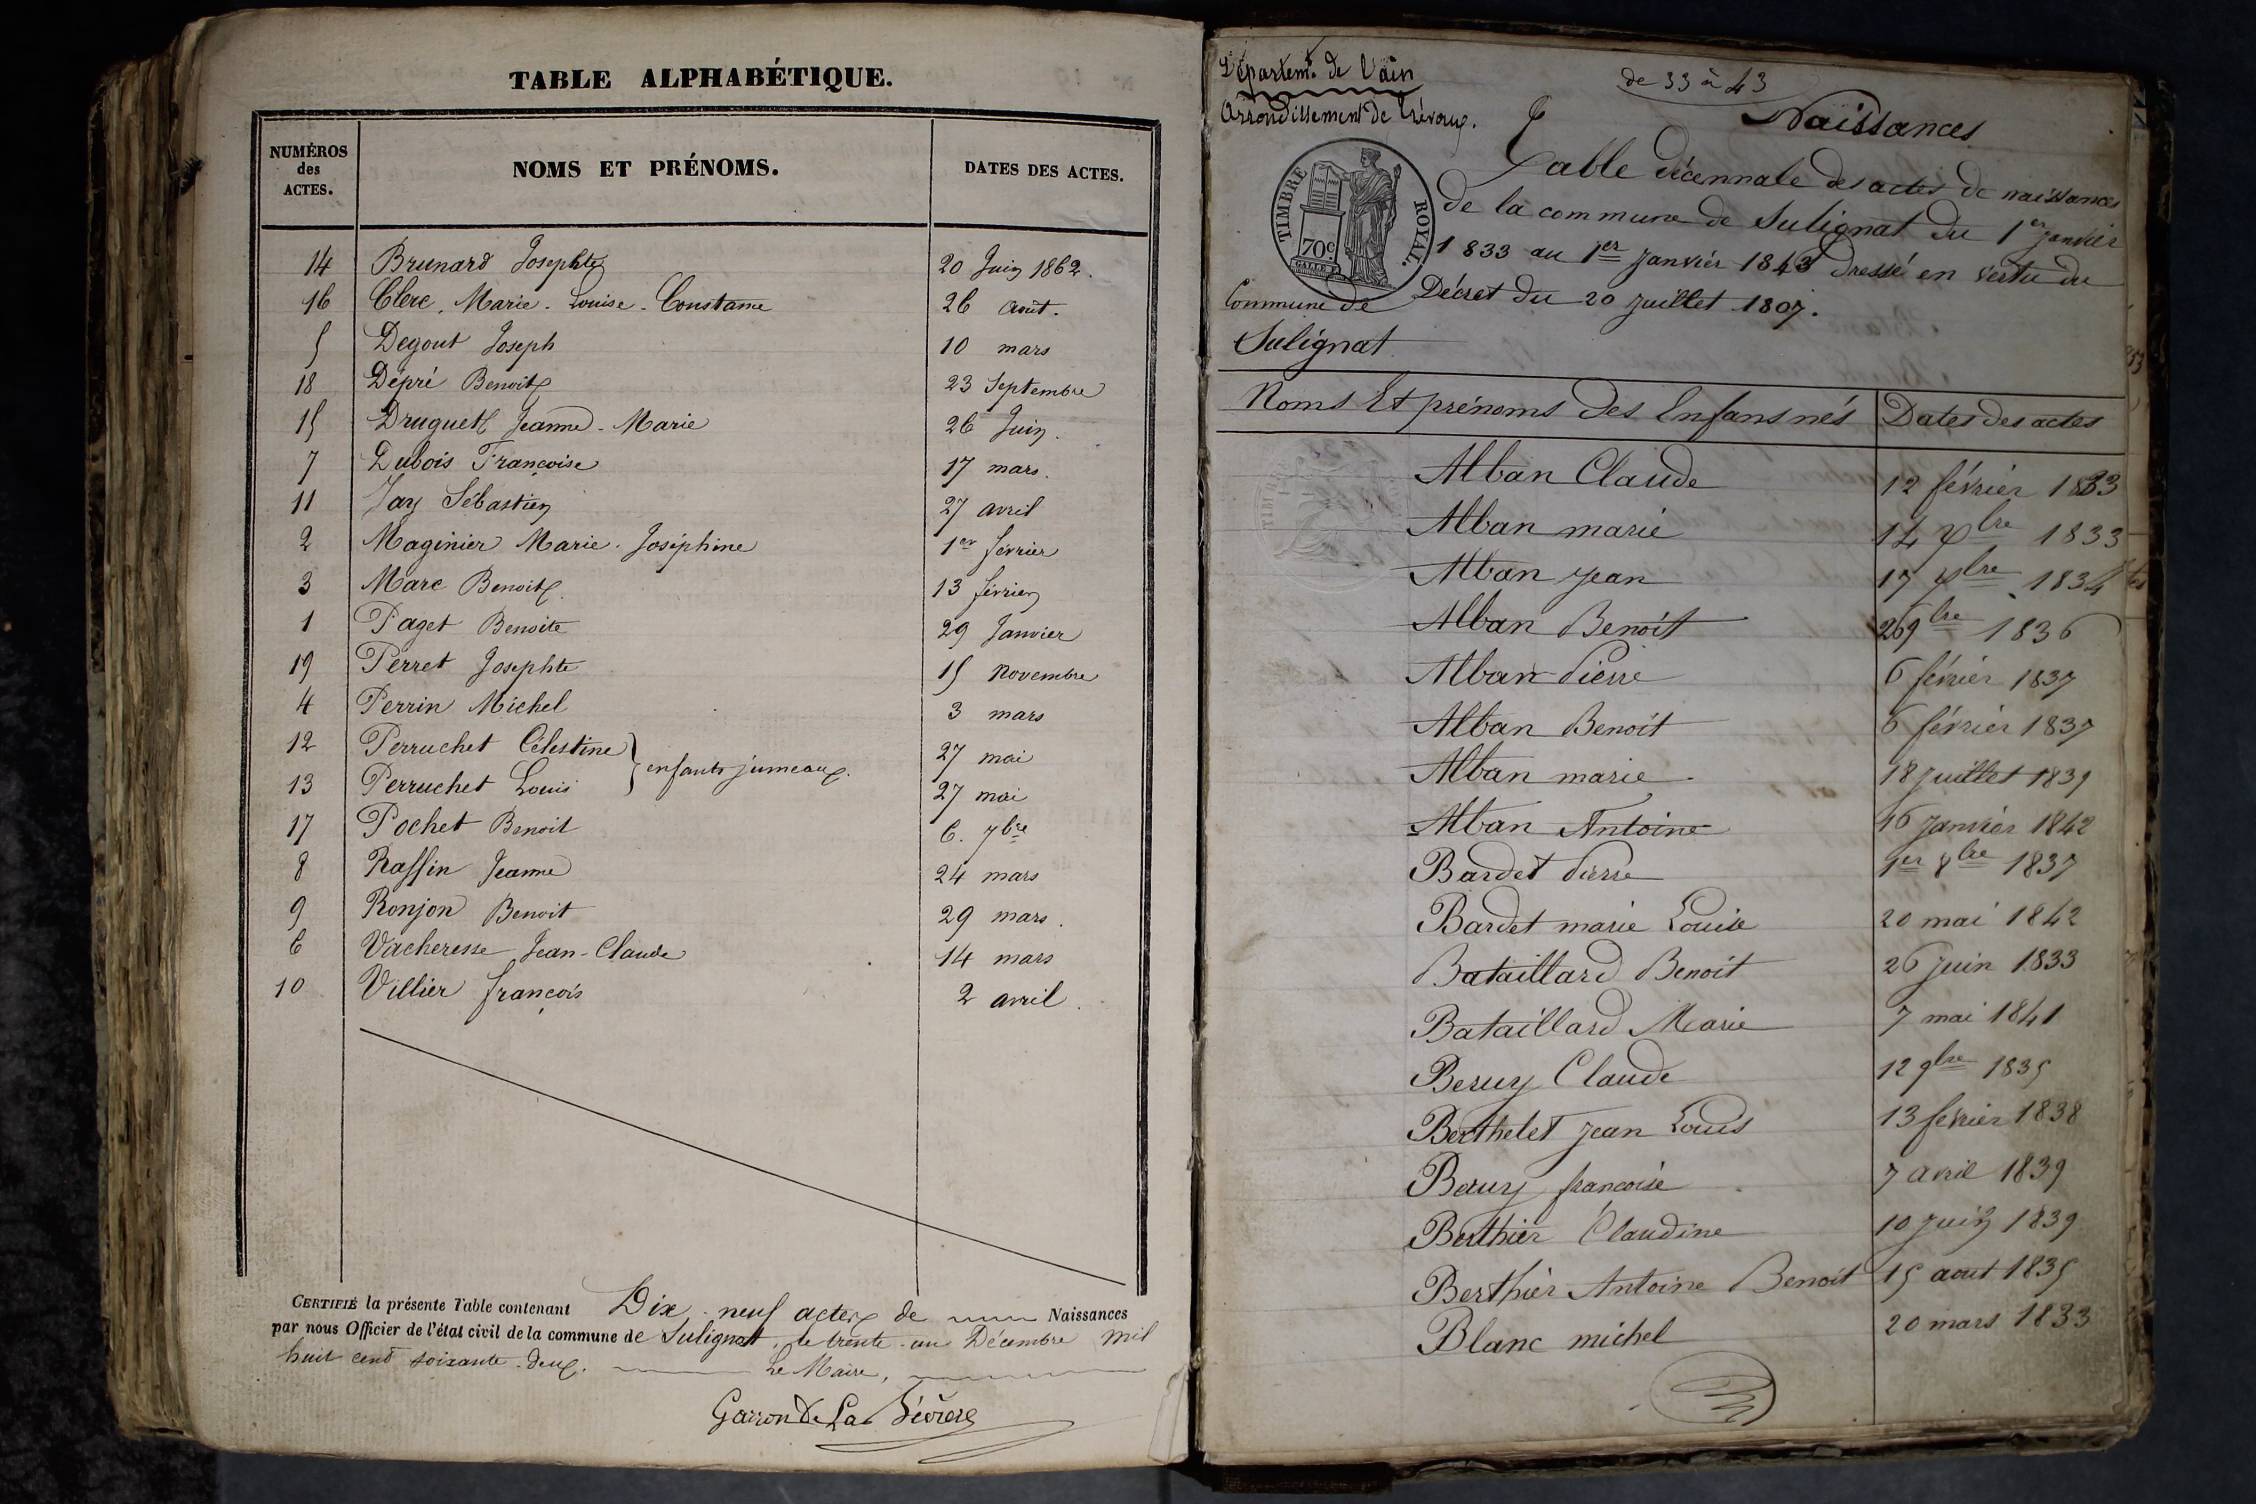 TABLE ALPHABÉTIQUE.
NUMÉROS des ACTES. NOMS ET PRÉNOMS. DATES DES ACTES.
14 Brunard Josephte 20 Juin 1862.
16 Clerc, Marie-Louise-Constance 26 Août.
5 Degout Joseph 10 mars
18 Dépré Benoite 23 Septembre
15 Druguet Jeanne-Marie 26 Juin.
7 Dubois Françoise 17 mars.
11 Jay Sébastien 27 avril
2 Maginier Marie-Joséphine 1er février
3 Marc Benoite. 13 février
1 Paget Benoite 29 Janvier
19 Perret Josephte 15 Novembre
4 Perrin Michel 3 mars
12 Perruchet Célestine 27 mai
enfants jumeaux.
13 Perruchet Louis 27 mai
17 Pochet Benoit 6. 7bre
8 Raffin Jeanne 24 mars
9 Ronjon Benoit 29 mars.
6 Vacheresse Jean-Claude 14 mars
10 Villier françois 2 avril.
CERTIFIÉ la présente Table contenant Dix-neuf actes de Naissances
par nous Officier de l'état civil de la commune de Sulignat, le trente-un Décembre mil
huit cent soixante-deux. Le Maire,
Garron De La Bévière
Départemt. de l'ain
de 33 à 43
Arrondissement de Trévoux.
Naissances
TIMBRE ROYAL.
70c.
Table décennale des actes de naissances
de la commune de Sulignat du 1er janvier
1833 au 1er janvier 1843 dressé en vertu du
Décret du 20 juillet 1807.
Commune de
Sulignat
Noms Et prénoms des Enfans nés Dates des actes
Alban Claude 12 février 1833
Alban marie 14 xbre 1833
Alban jean 17 xbre 1834
Alban Benoit 26 9bre 1836
Alban Pierre 6 février 1837
Alban Benoit 6 février 1837
Alban marie 18 juillet 1839
Alban Antoine 16 janvier 1842
Bardet Pierre 1er 8bre 1837
Bardet marie Louise 20 mai 1842
Bataillard Benoit 26 juin 1833
Bataillard Marie 7 mai 1841
Beruy Claude 12 9bre 1835
Berthelet jean Louis 13 fevrier 1838
Beruy francoise 7 avril 1839
Berthier Claudine 10 juin 1839
Berthier Antoine Benoit 15 aout 1835
Blanc michel 20 mars 1833